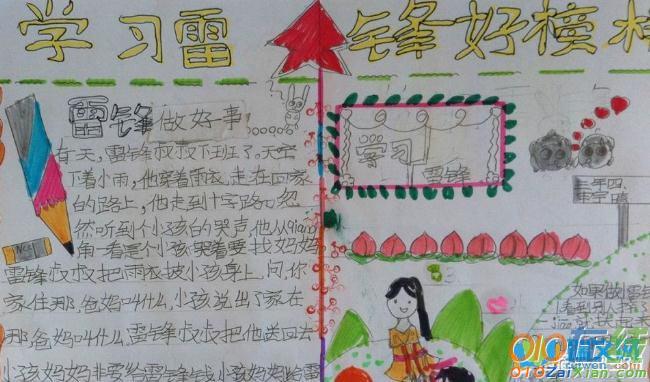 学习雷锋好榜样
雷锋做好事
有一天,雷锋叔叔下班了。天空
下着小雨,他穿着雨衣,走在回家
的路上,他走到十字路口,忽
然听到个小孩的哭声,他从qiang
角一看是个小孩哭着要找妈妈
雷锋叔叔把雨衣披小孩身上,问,你
家住那,爸妈叫什么,小孩说出了家在
那,爸妈叫什么,雷锋叔叔把他送回去
小孩妈妈非要给雷锋钱,小孩妈妈给雷
学习
雷锋
三年四
如果做小雷锋
看到别人
在线
010ZaiXian.com